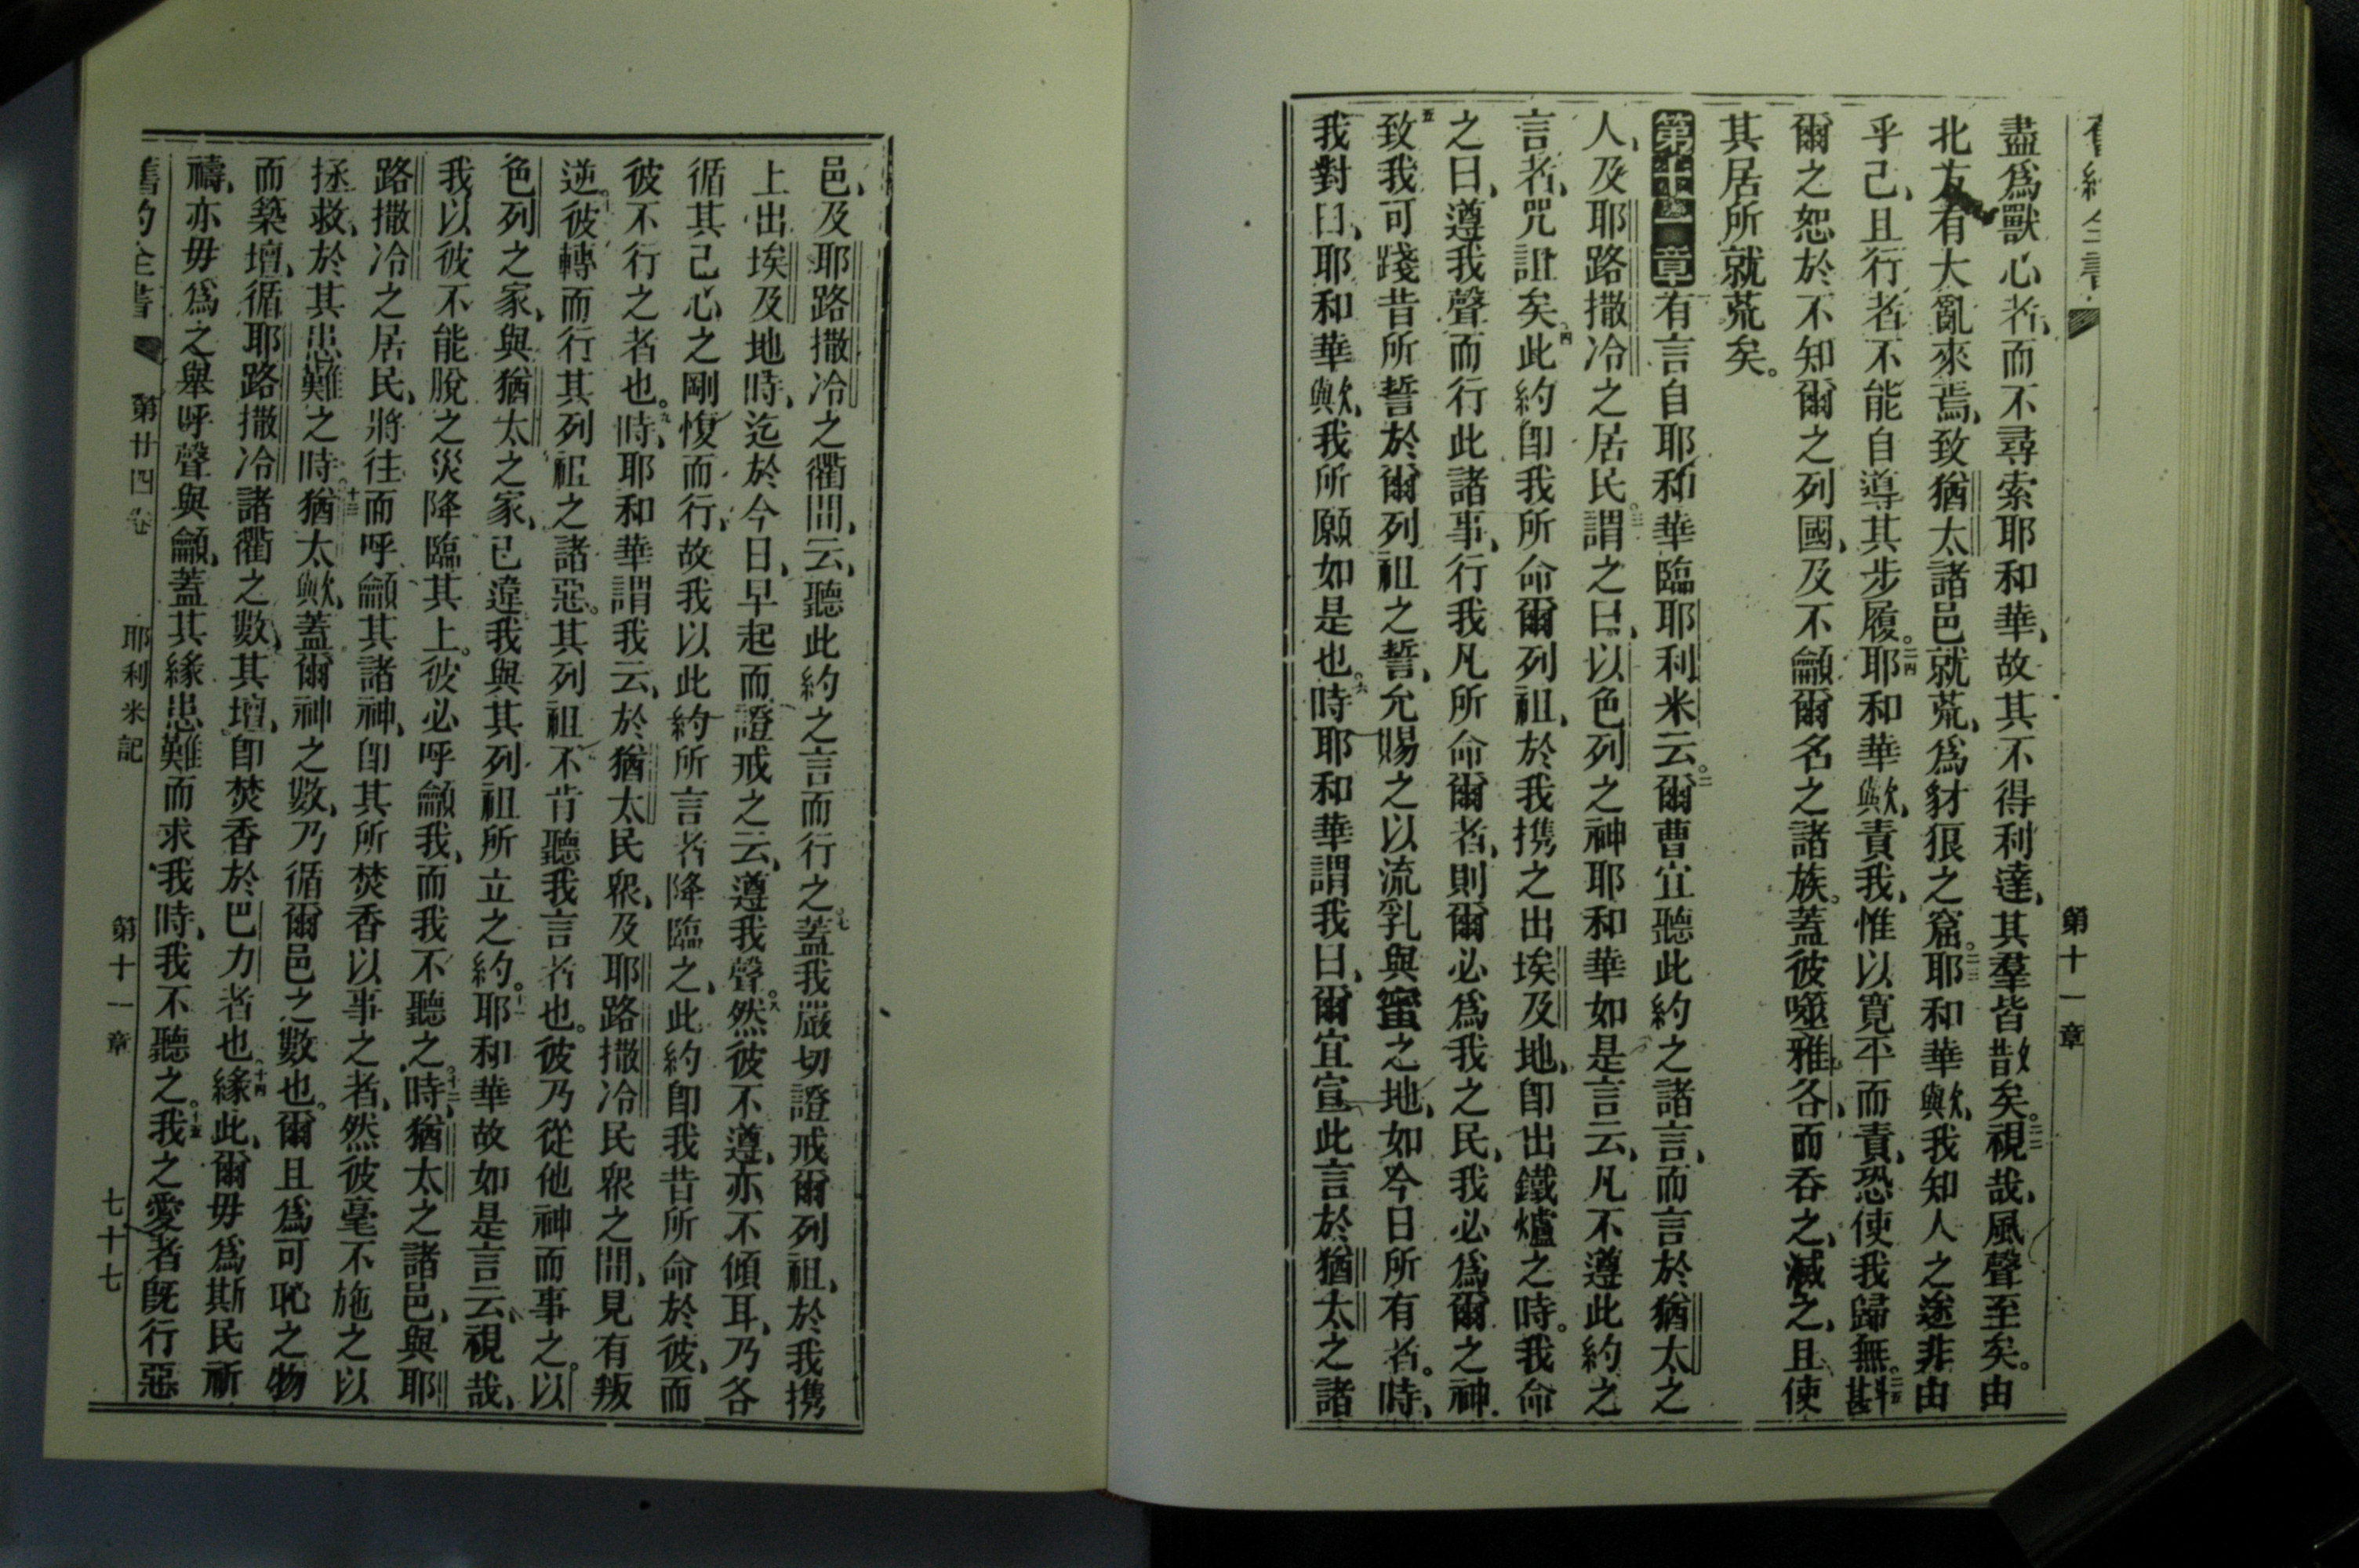 舊約全書 第十一章
盡爲獸心者、而不尋索耶和華、故其不得利達、其羣皆散矣。二二視哉、風聲至矣。由
北方有大亂來焉、致猶太諸邑就荒、爲豺狼之窟。二三耶和華歟、我知人之途非由
乎己、且行者不能自導其步履。二四耶和華歟、責我、惟以寬平而責、恐使我歸無。二五斟
爾之恕於不知爾之列國、及不籲爾名之諸族。蓋彼噬雅各、而吞之、滅之、且使
其居所就荒矣。
第十一章有言自耶和華臨耶利米云。二爾曹宜聽此約之諸言、而言於猶太之
人、及耶路撒冷之居民。三謂之曰、以色列之神耶和華如是言云、凡不遵此約之
言者、咒詛矣。四此約卽我所命爾列祖、於我携之出埃及地、卽出鐵爐之時。我命
之曰、遵我聲而行此諸事、行我凡所命爾者、則爾必爲我之民、我必爲爾之神。
五致我可踐昔所誓於爾列祖之誓、允賜之以流乳與蜜之地、如今日所有者。時、
我對曰、耶和華歟、我所願如是也。六時耶和華謂我曰、爾宜宣此言於猶太之諸
邑、及耶路撒冷之衢間、云、聽此約之言而行之。七蓋我嚴切證戒爾列祖、於我携
上出埃及地時、迄於今日、早起而證戒之云、遵我聲。八然彼不遵、亦不傾耳、乃各
循其己心之剛愎而行、故我以此約所言者降臨之、此約卽我昔所命於彼、而
彼不行之者也。九時、耶和華謂我云、於猶太民衆、及耶路撒冷民衆之間、見有叛
逆。十彼轉而行其列祖之諸惡。其列祖不肯聽我言者也。彼乃從他神而事之。以
色列之家、與猶太之家、已違我與其列祖所立之約。十一耶和華故如是言云、視哉、
我以彼不能脫之災降臨其上。彼必呼籲我、而我不聽之。十二時、猶太之諸邑、與耶
路撒冷之居民、將往而呼籲其諸神、卽其所焚香以事之者、然彼毫不施之以
拯救、於其患難之時。十三猶太歟、蓋爾神之數、乃循爾邑之數也。爾且爲可恥之物
而築壇、循耶路撒冷諸衢之數、其壇、卽焚香於巴力者也。十四緣此、爾毋爲斯民祈
禱、亦毋爲之舉呼聲與籲、蓋其緣患難而求我時、我不聽之。十五我之愛者旣行惡
舊約全書 第廿四卷 耶利米記 第十一章 七十七